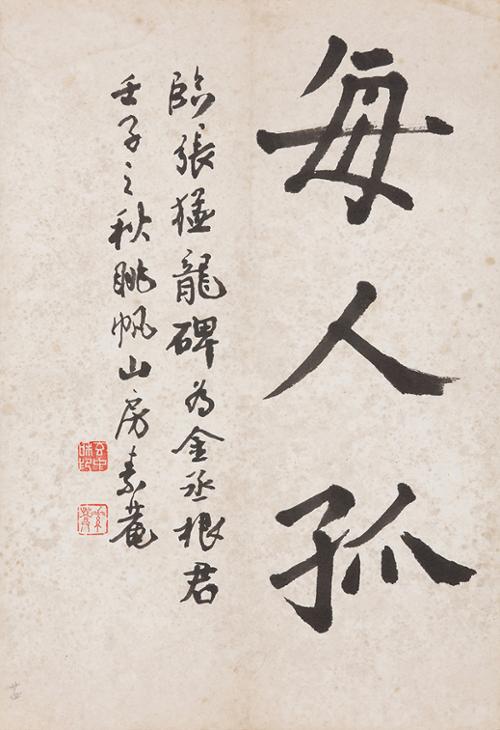 每人孤
臨張猛龍碑為金丞根君
壬子之秋眺帆山房素菴